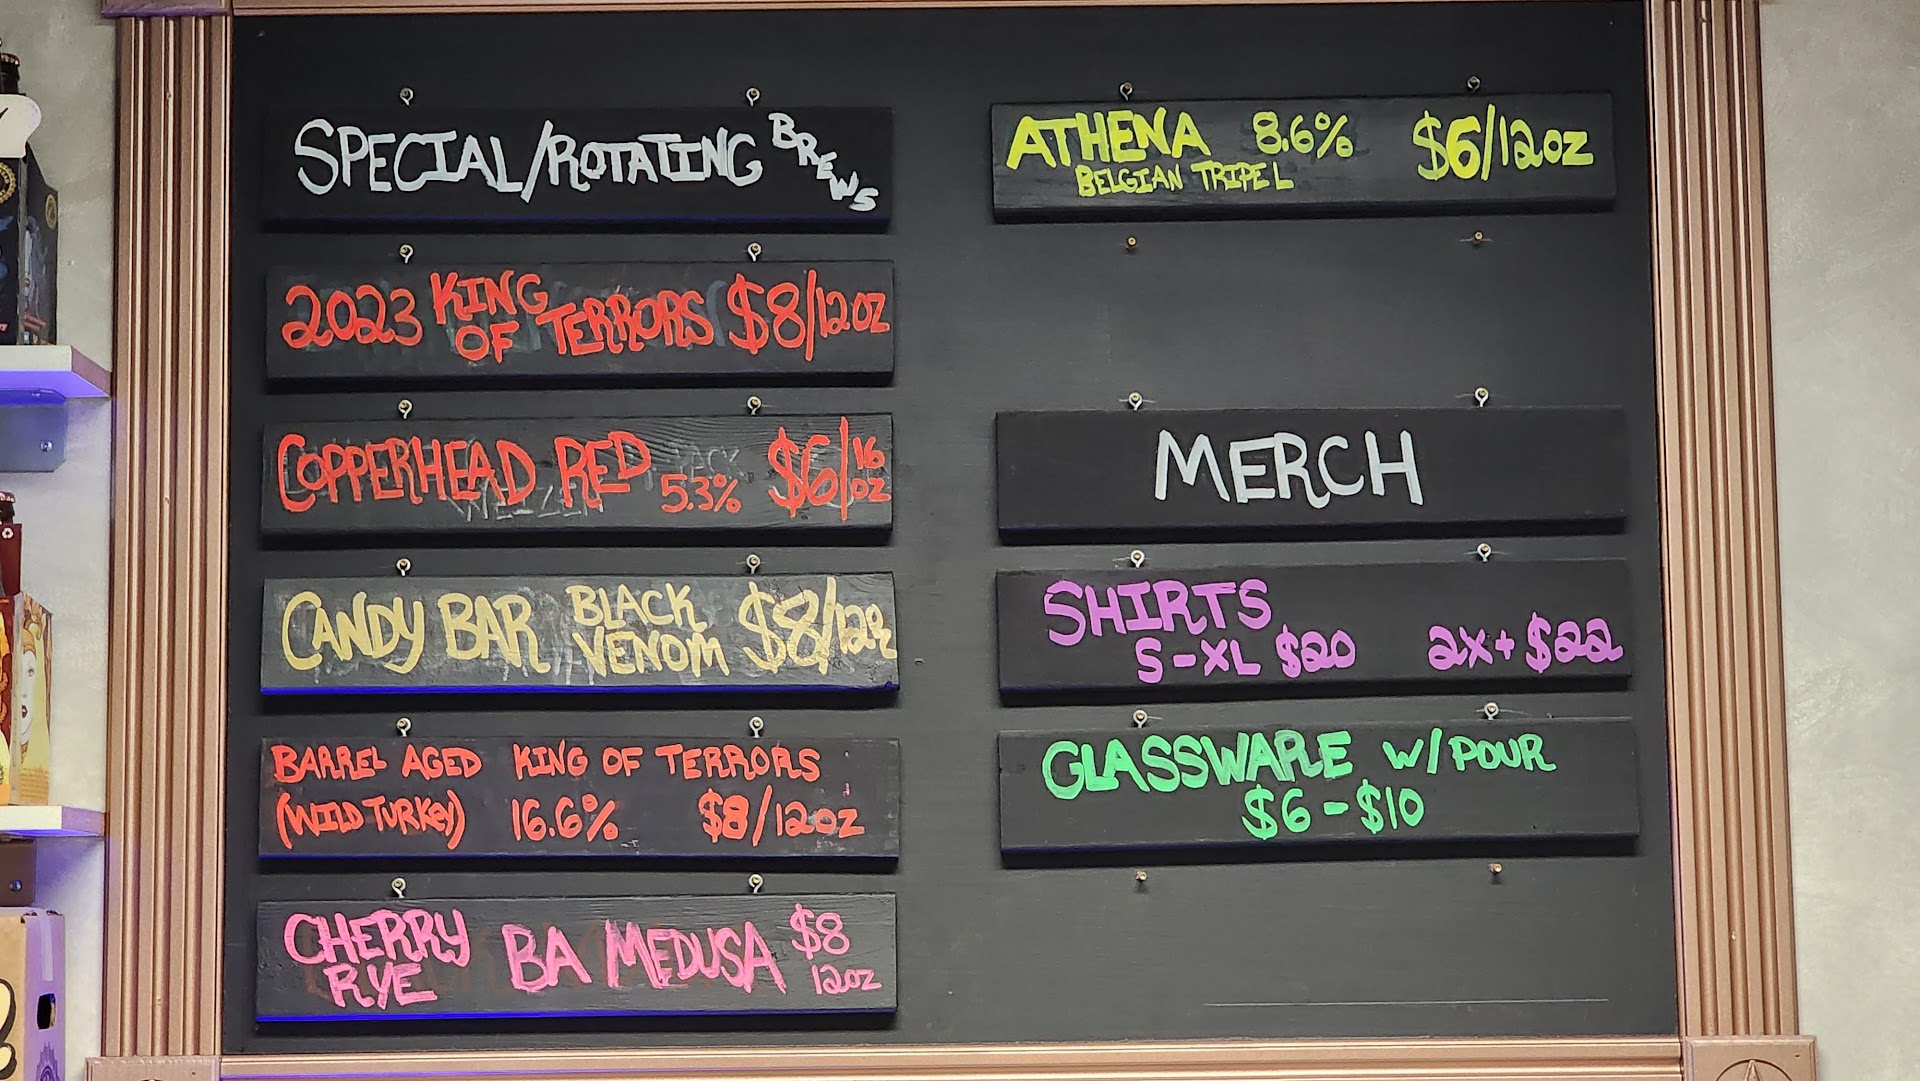 SPECIAL/ROTATING BREWS
2023 KING OF TERRORS $8/12OZ
COPPERHEAD RED 5.3% $6/16 OZ
CANDY BAR BLACK VENOM $8/12OZ
BARREL AGED KING OF TERRORS
(WILD TURKEY) 16.6% $8/12OZ
CHERRY RYE BA MEDUSA $8 12OZ
ATHENA 8.6% $6/12OZ
BELGIAN TRIPEL
MERCH
SHIRTS
S-XL $20 2X+ $22
GLASSWARE W/POUR
$6-$10